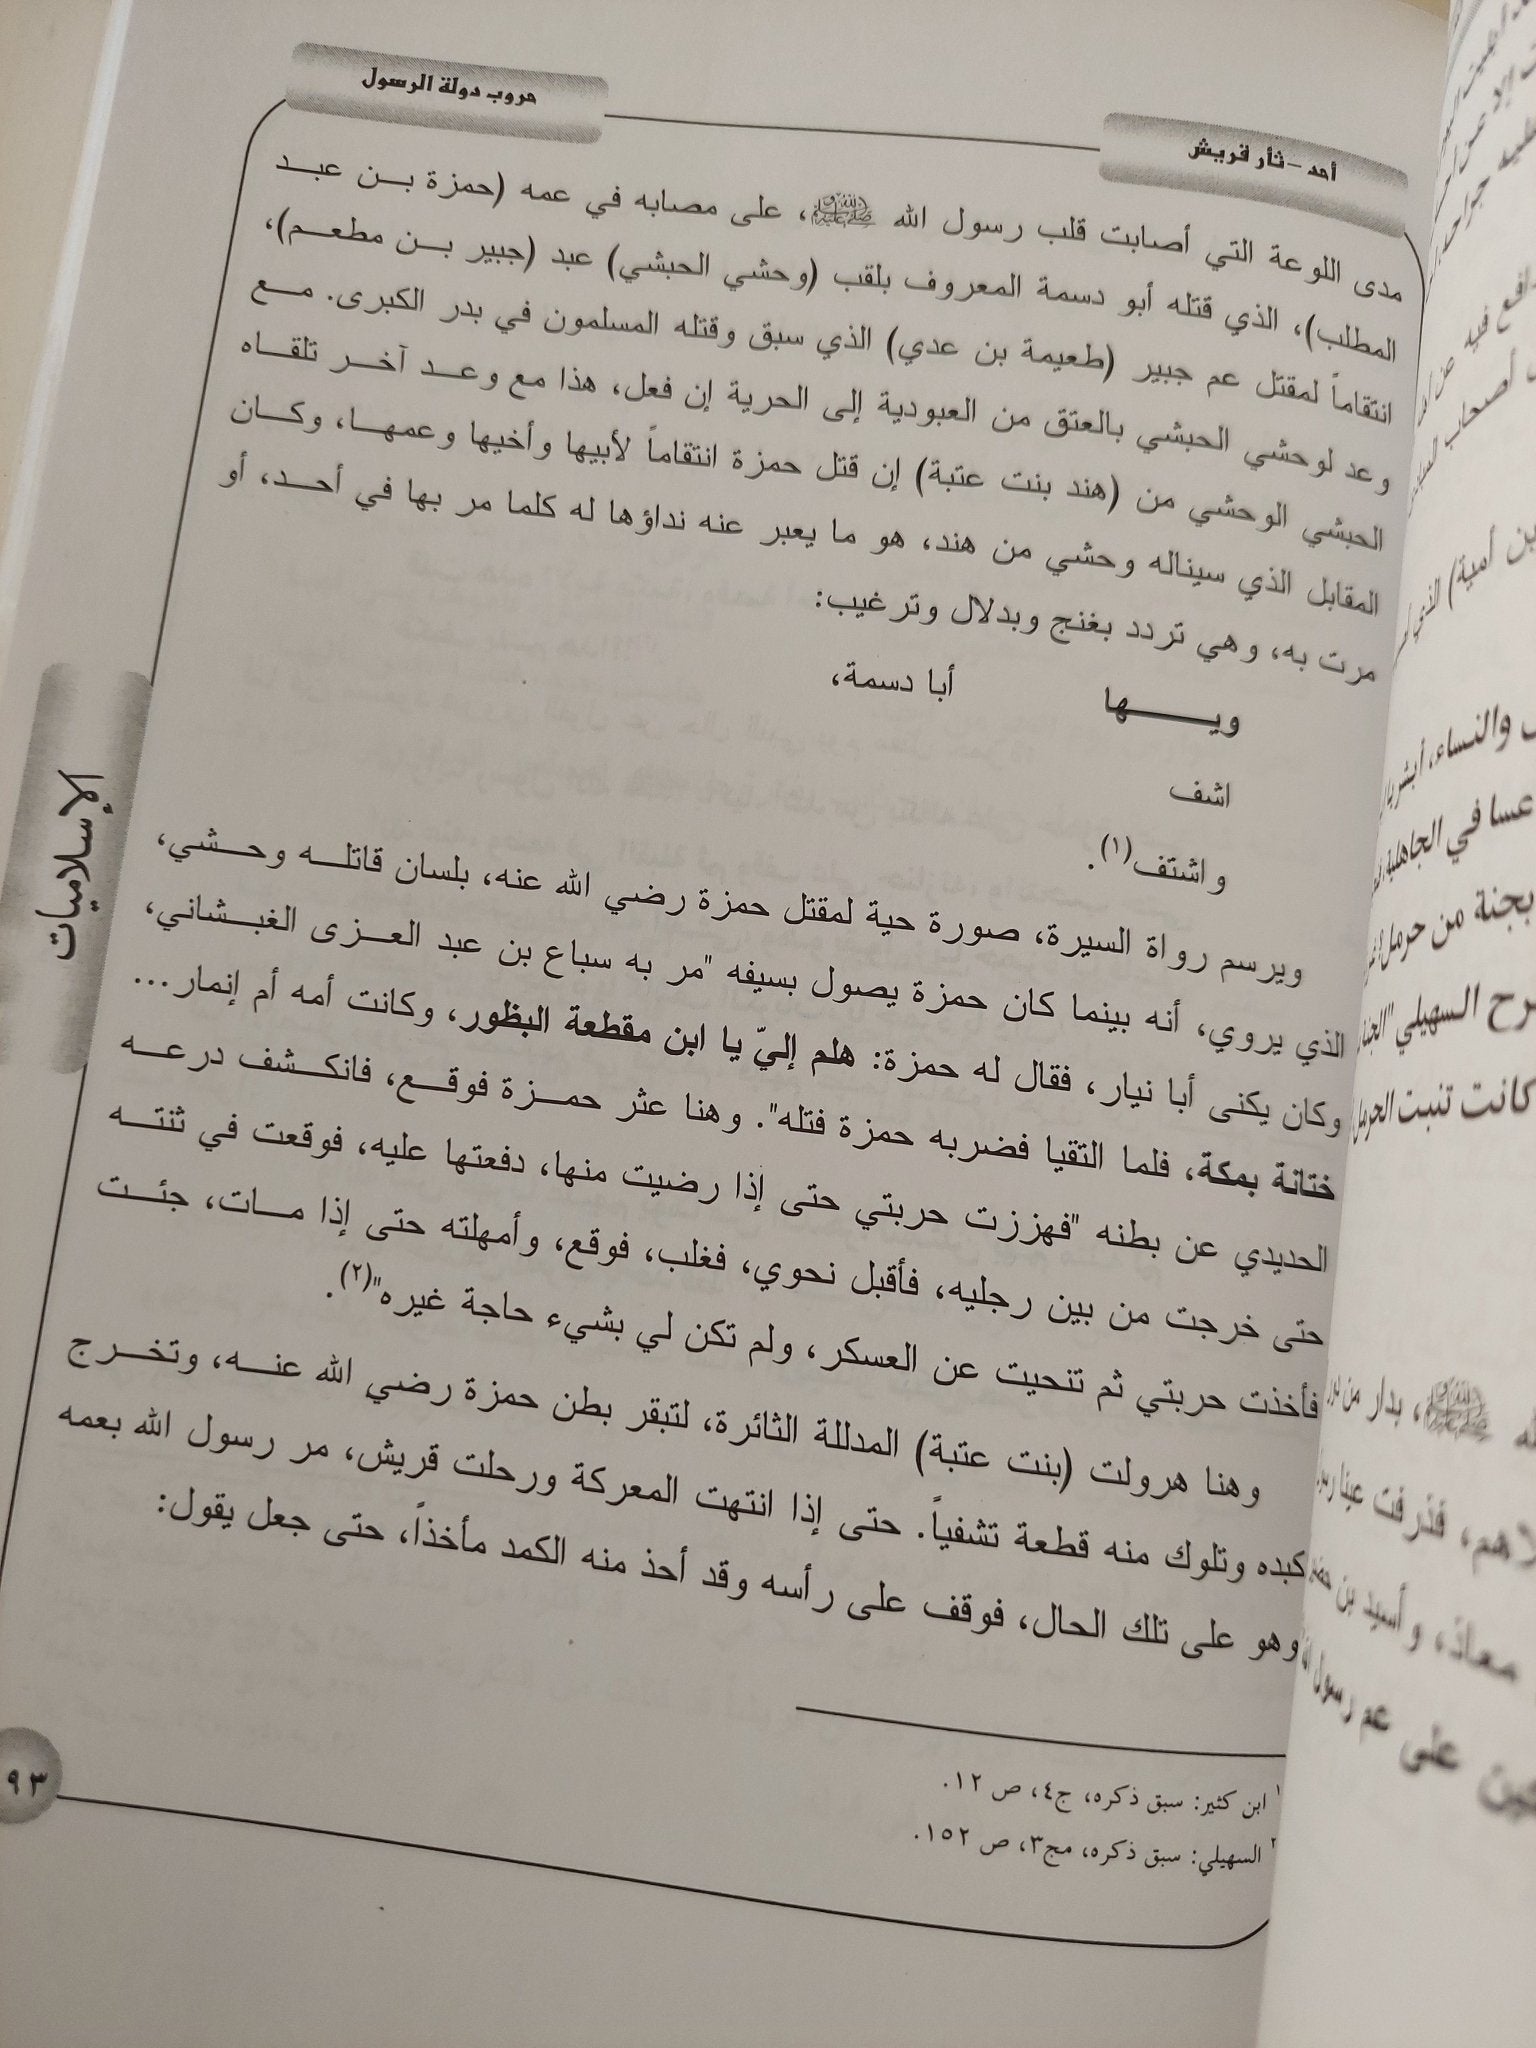 أحد – ثأر قريش
حروب دولة الرسول
مدى اللوعة التي أصابت قلب رسول الله ﷺ، على مصابه في عمه (حمزة بن عبد
المطلب)، الذي قتله أبو دسمة المعروف بلقب (وحشي الحبشي) عبد (جبير بن مطعم)،
انتقاماً لمقتل عم جبير (طعيمة بن عدي) الذي سبق وقتله المسلمون في بدر الكبرى. مع
وعد لوحشي الحبشي بالعتق من العبودية إلى الحرية إن فعل، هذا مع وعد آخر تلقاه
الحبشي الوحشي من (هند بنت عتبة) إن قتل حمزة انتقاماً لأبيها وأخيها وعمها، وكان
المقابل الذي سيناله وحشي من هند، هو ما يعبر عنه نداؤها له كلما مر بها في أحد، أو
مرت به، وهي تردد بغنج وبدلال وترغيب:
ويها أبا دسمة،
اشف
واشتف(١).
ويرسم رواة السيرة، صورة حية لمقتل حمزة رضي الله عنه، بلسان قاتله وحشي،
الذي يروي، أنه بينما كان حمزة يصول بسيفه "مر به سباع بن عبد العزى الغبشاني،
وكان يكنى أبا نيار، فقال له حمزة: هلم إليّ يا ابن مقطعة البظور، وكانت أمه أم إنمار...
ختانة بمكة، فلما التقيا فضربه حمزة فتله". وهنا عثر حمزة فوقع، فانكشف درعه
الحديدي عن بطنه "فهززت حربتي حتى إذا رضيت منها، دفعتها عليه، فوقعت في ثنته
حتى خرجت من بين رجليه، فأقبل نحوي، فغلب، فوقع، وأمهلته حتى إذا مات، جئت
فأخذت حربتي ثم تنحيت عن العسكر، ولم تكن لي بشيء حاجة غيره"(٢).
وهنا هرولت (بنت عتبة) المدللة الثائرة، لتبقر بطن حمزة رضي الله عنه، وتخرج
كبده وتلوك منه قطعة تشفياً. حتى إذا انتهت المعركة ورحلت قريش، مر رسول الله بعمه
وهو على تلك الحال، فوقف على رأسه وقد أحذ منه الكمد مأخذاً، حتى جعل يقول:
١ ابن كثير: سبق ذكره، ج٤، ص ١٢.
٢ السهيلي: سبق ذكره، مج٣، ص ١٥٢.
الإسلاميات
٩٣
بن أمية) الذي
والنساء، أبشر
عسا في الجاهلية
بجنة من حرمل
السهيلي "الجنا
كانت تنبت الحرمل
ﷺ، بدار من
فذرفت عينا
معاذ، وأسيد بن
على عم رسول